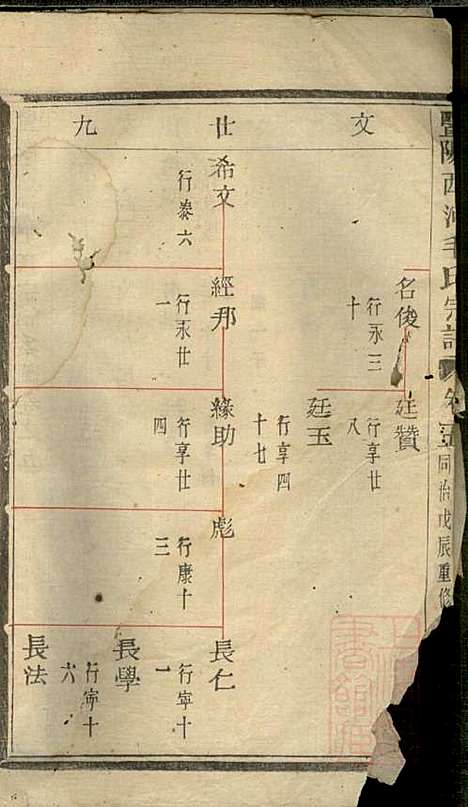 暨陽西河毛氏宗譜
同治戊辰重修
文
仕
九
名俊
行永三
十
廷贊
行享廿
八
廷玉
行享四
十七
希文
行泰六
經邦
行永廿
一
緣助
行享廿
四
彪
行康十
三
長仁
行寧十
一
長學
行寧十
六
長法